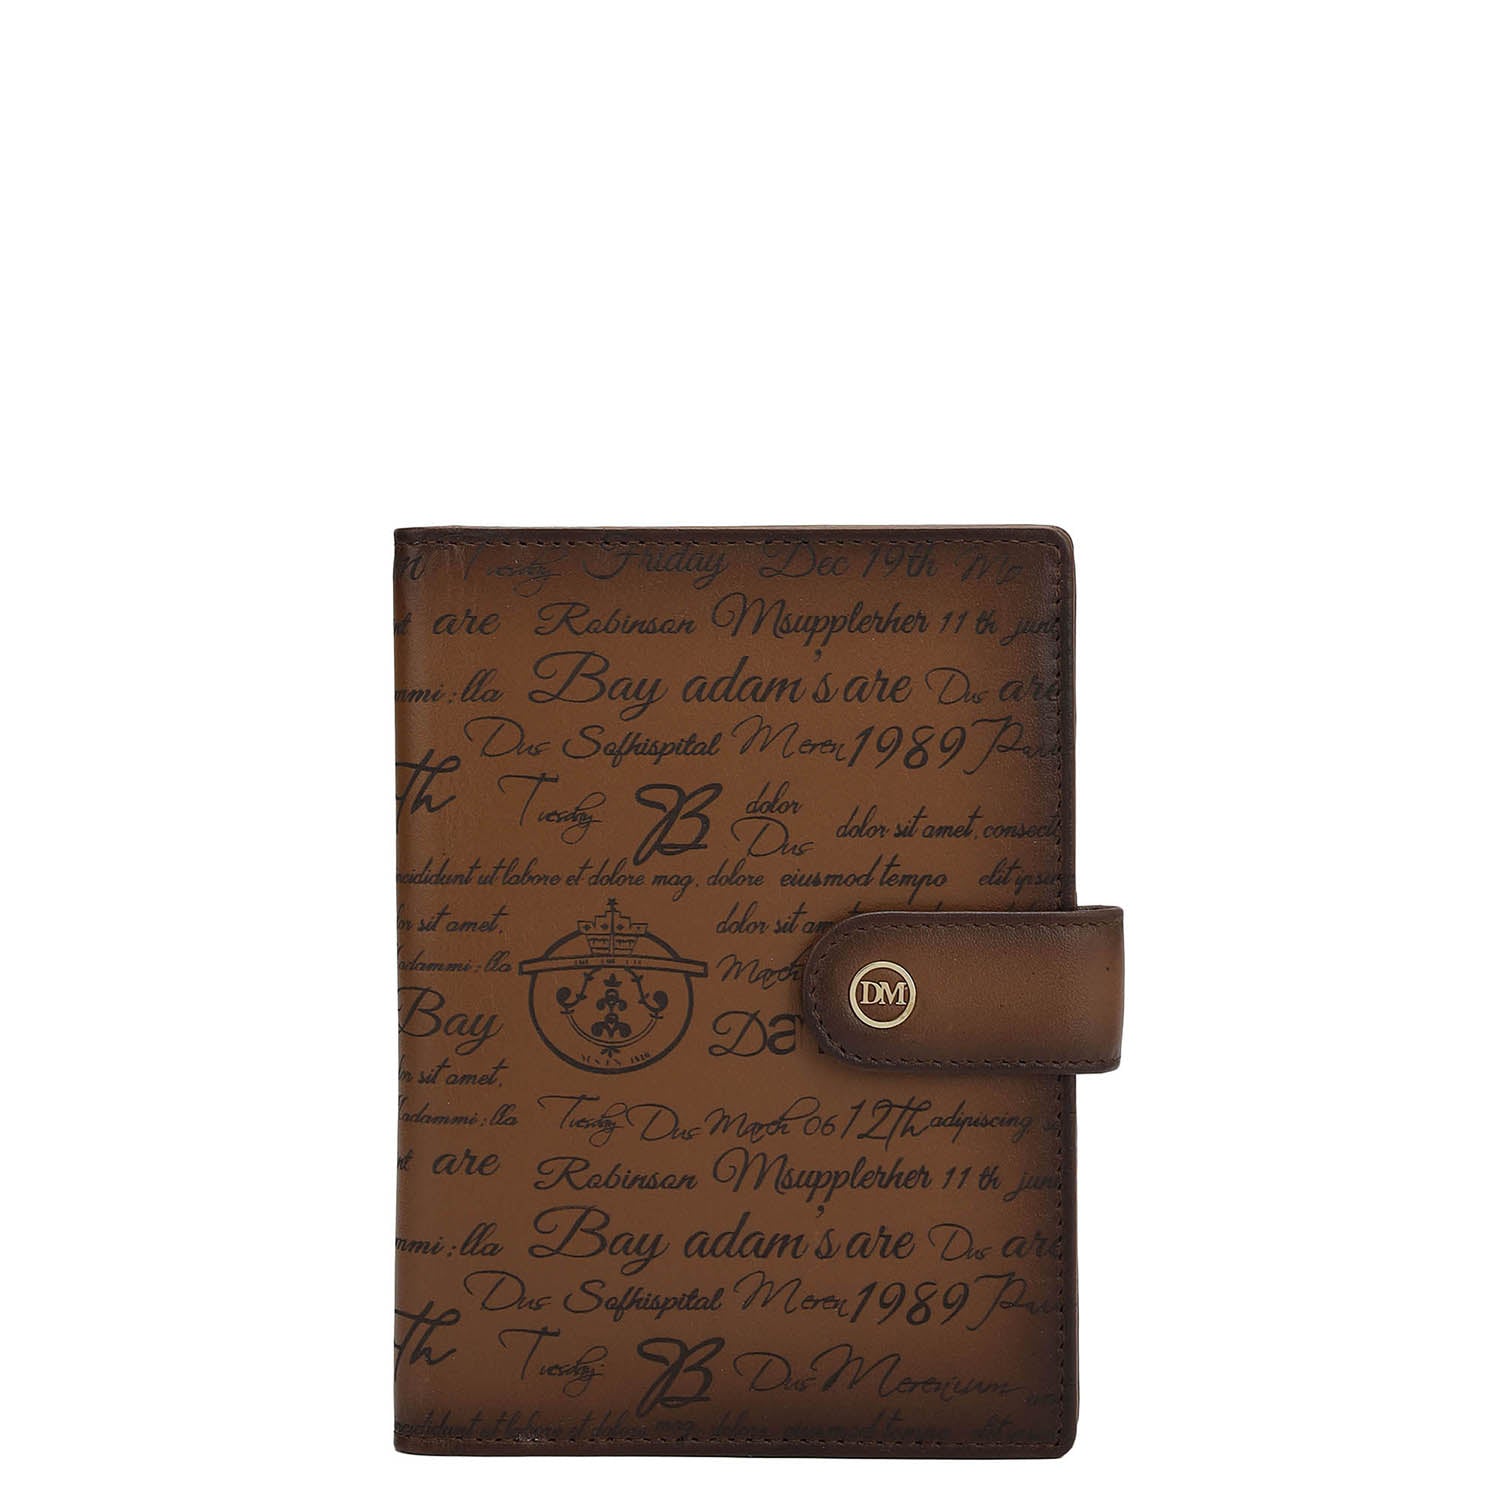 Tuesday Friday Dec 19th Mo
are Robinson Msupplerher 11 th june
mmi; lla Bay adam's are Dus are
Dus Sofhispital Meren 1989
th Tuesday B dolor
Dus dolor sit amet, consect
ncididunt ut labore et dolore mag, dolore eiusmod tempo elit ipsu
lor sit amet, dolor sit am
Madammi; lla March
Bay Da
DM
lor sit amet,
Madammi; lla Tuesday Dus March 06 12th adipiscing, s
are Robinson Msupplerher 11 th june
mmi; lla Bay adam's are Dus are
Dus Sofhispital Meren 1989
th Tuesday B Dus Merenium
ncididunt ut labore et dolore mag, dolore eiusmod tempo elit